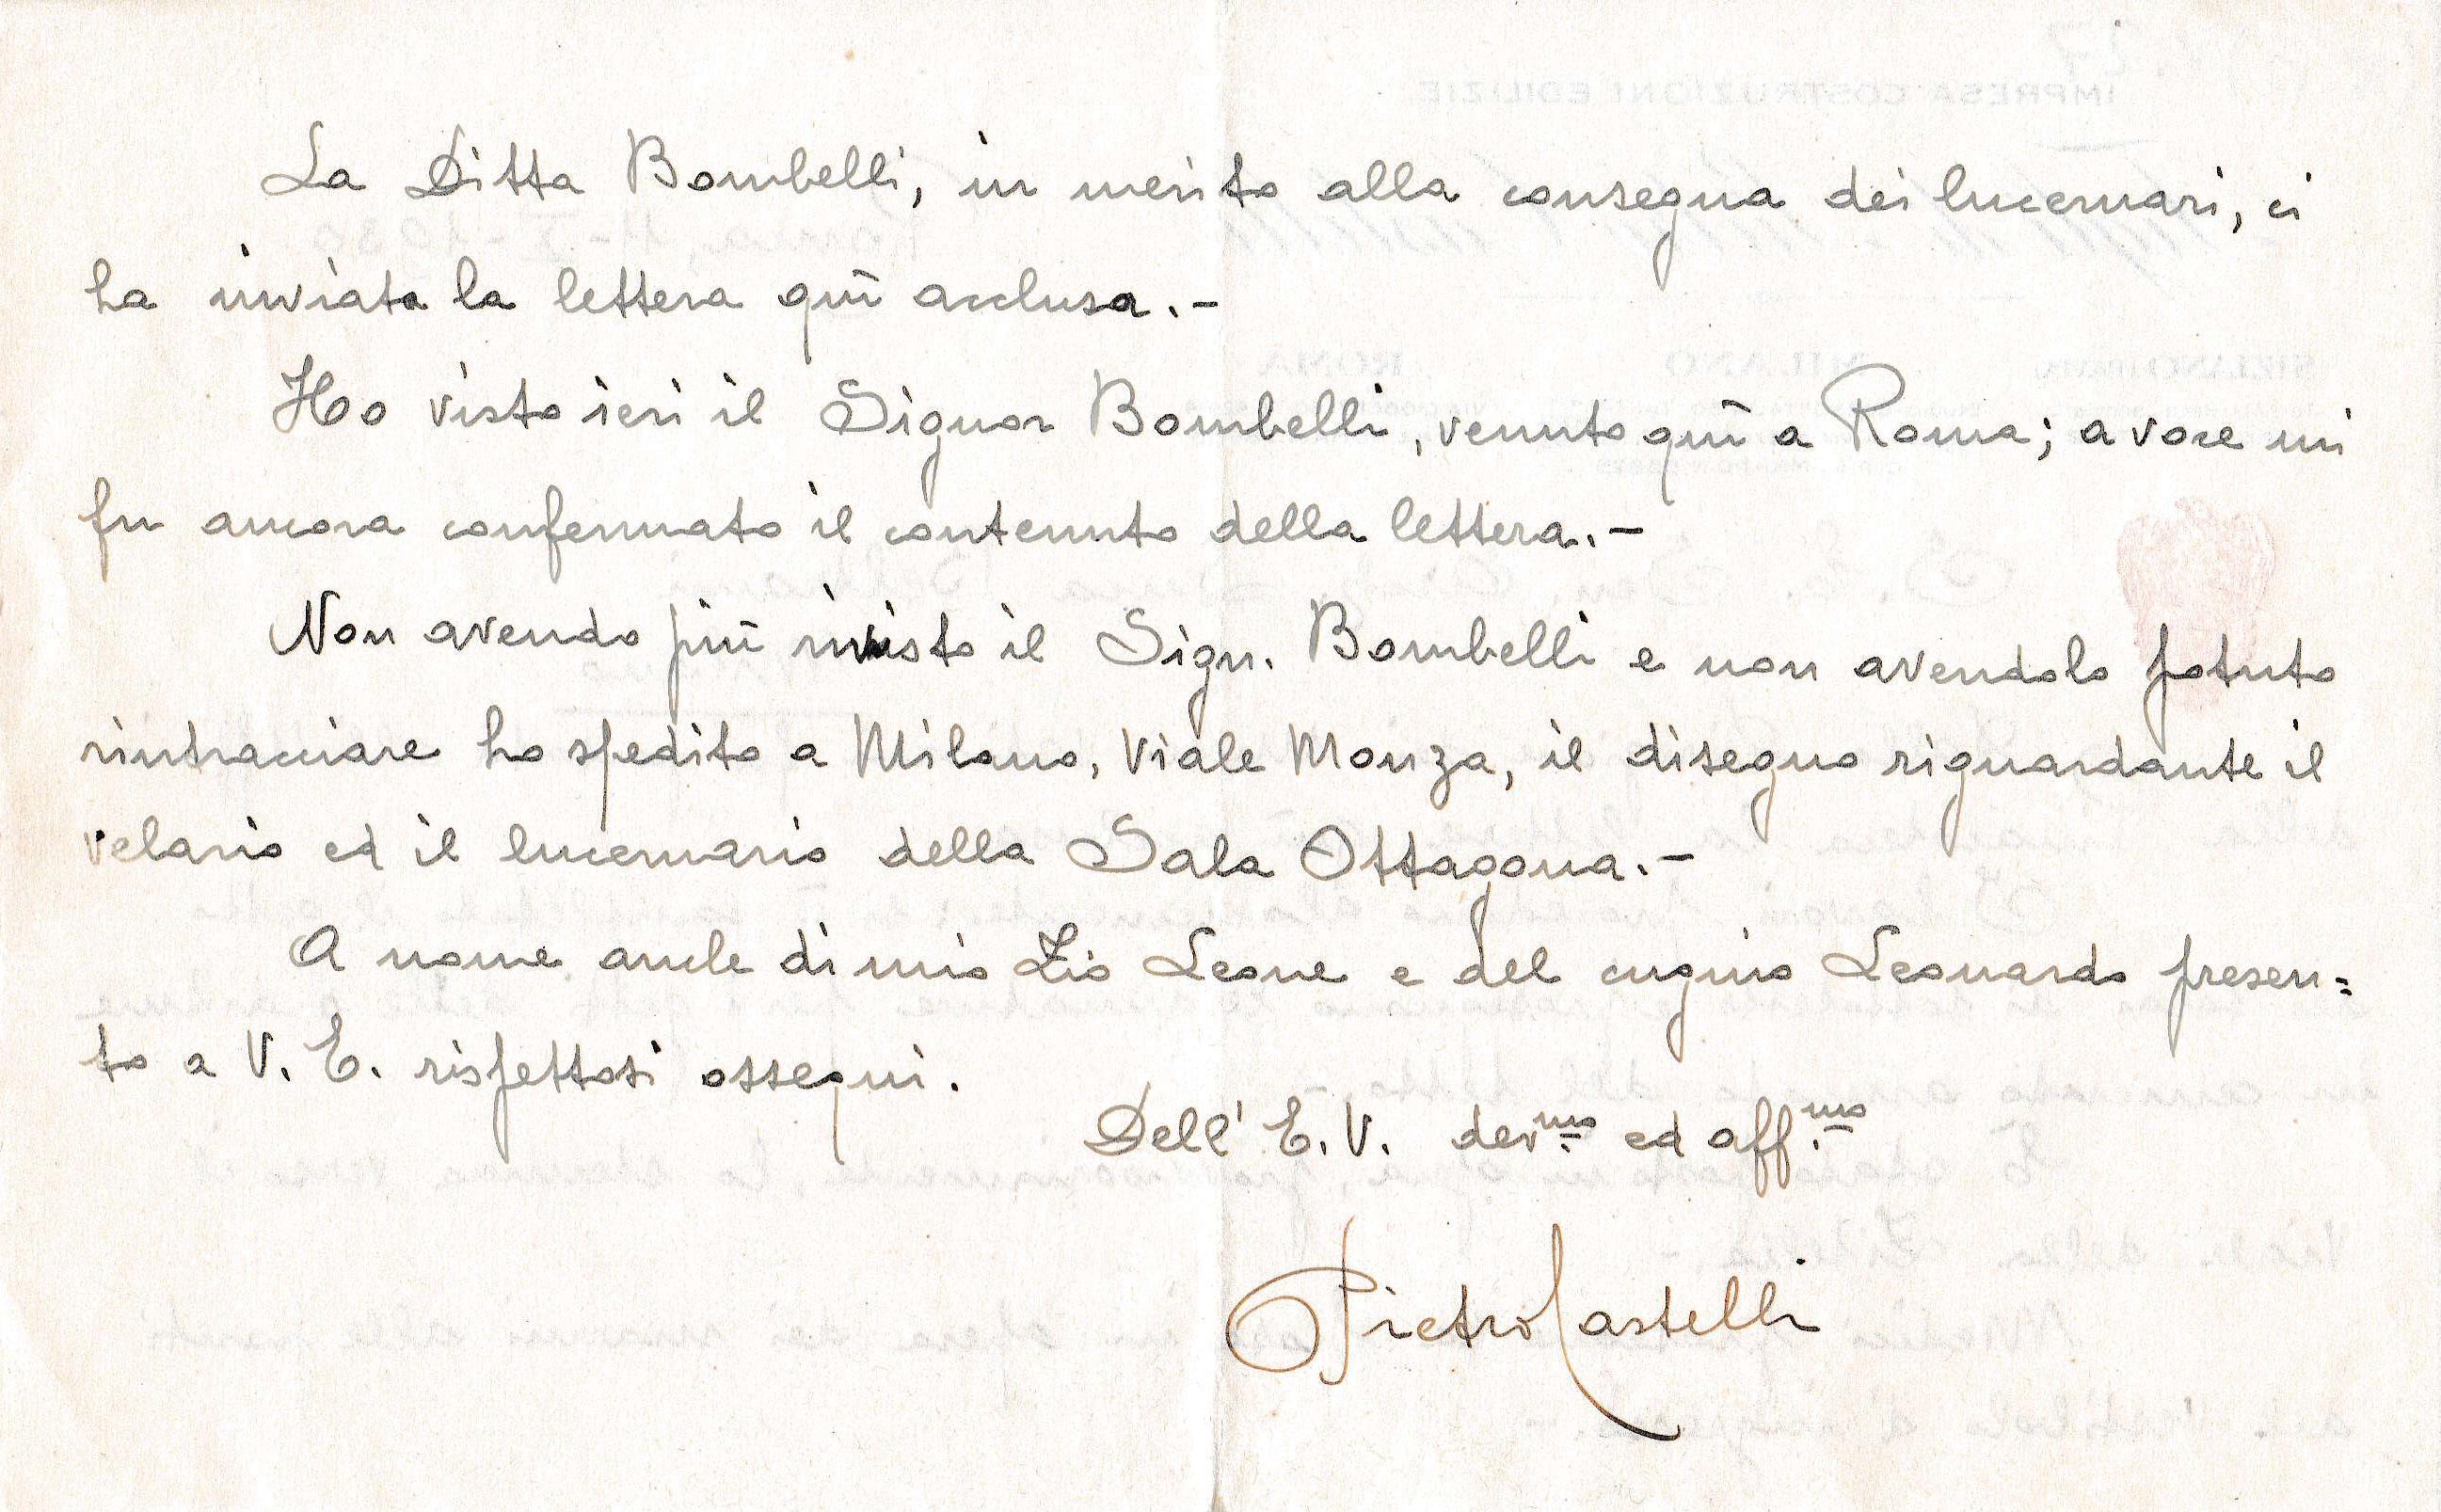 La Ditta Bombelli, in merito alla consegna dei lucernari, ci
ha inviata la lettera quì acclusa.-
Ho visto ieri il Signor Bombelli, venuto quì a Roma; a voce mi
fu ancora confermato il contenuto della lettera.-
Non avendo più rivisto il Sign. Bombelli e non avendolo potuto
rintracciare ho spedito a Milano, Viale Monza, il disegno riguardante il
velario ed il lucernario della Sala Ottagona.-
A nome anche di mio Zio Leone e del cugino Leonardo presen=
to a V. E. rispettosi ossequi.
Dell' E. V. dev.mo ed aff.mo
Pietro Castelli